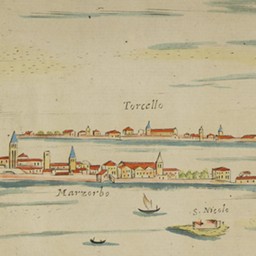 Torcello
Marzorbo
S. Nicolo